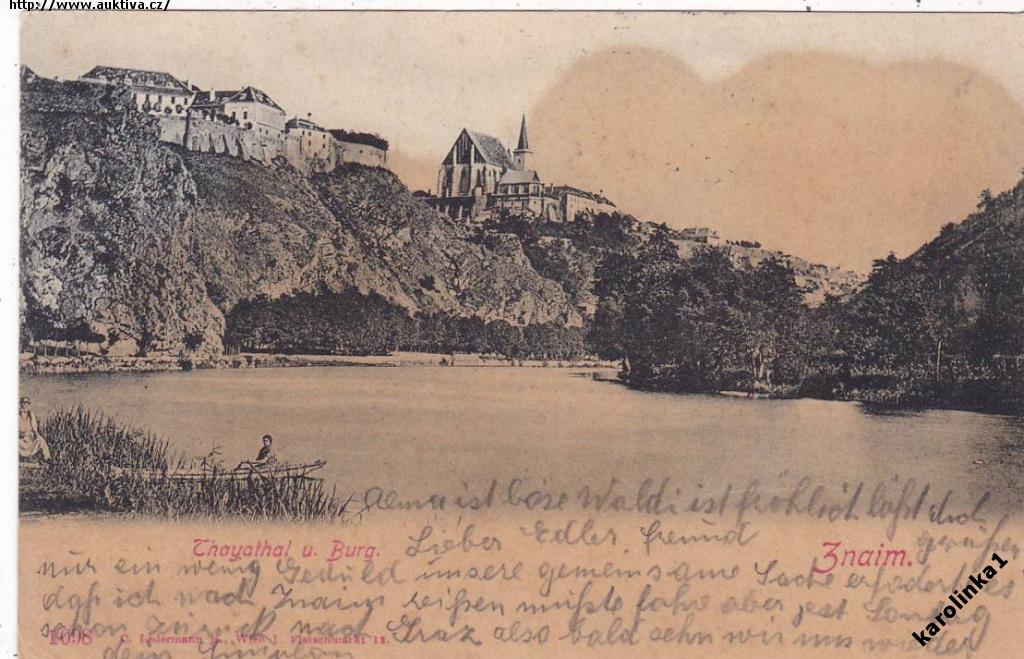 http://www.auktiva.cz/
Alma ist böse Waldi ist fröhlich läßt dich
grüßen
Thayathal u. Burg.
Znaim.
Lieber Edler Freund
nur ein wenig Geduld unsere gemeinsame Sache erfordert es
daß ich nach Znaim reißen müßte fahre aber jest Sonntag
schon zurück nach Graz also bald sehn wir uns wieder
1098 C. Ledermann jr., Wien I. Fleischmarkt 12.
dein
karolinka1